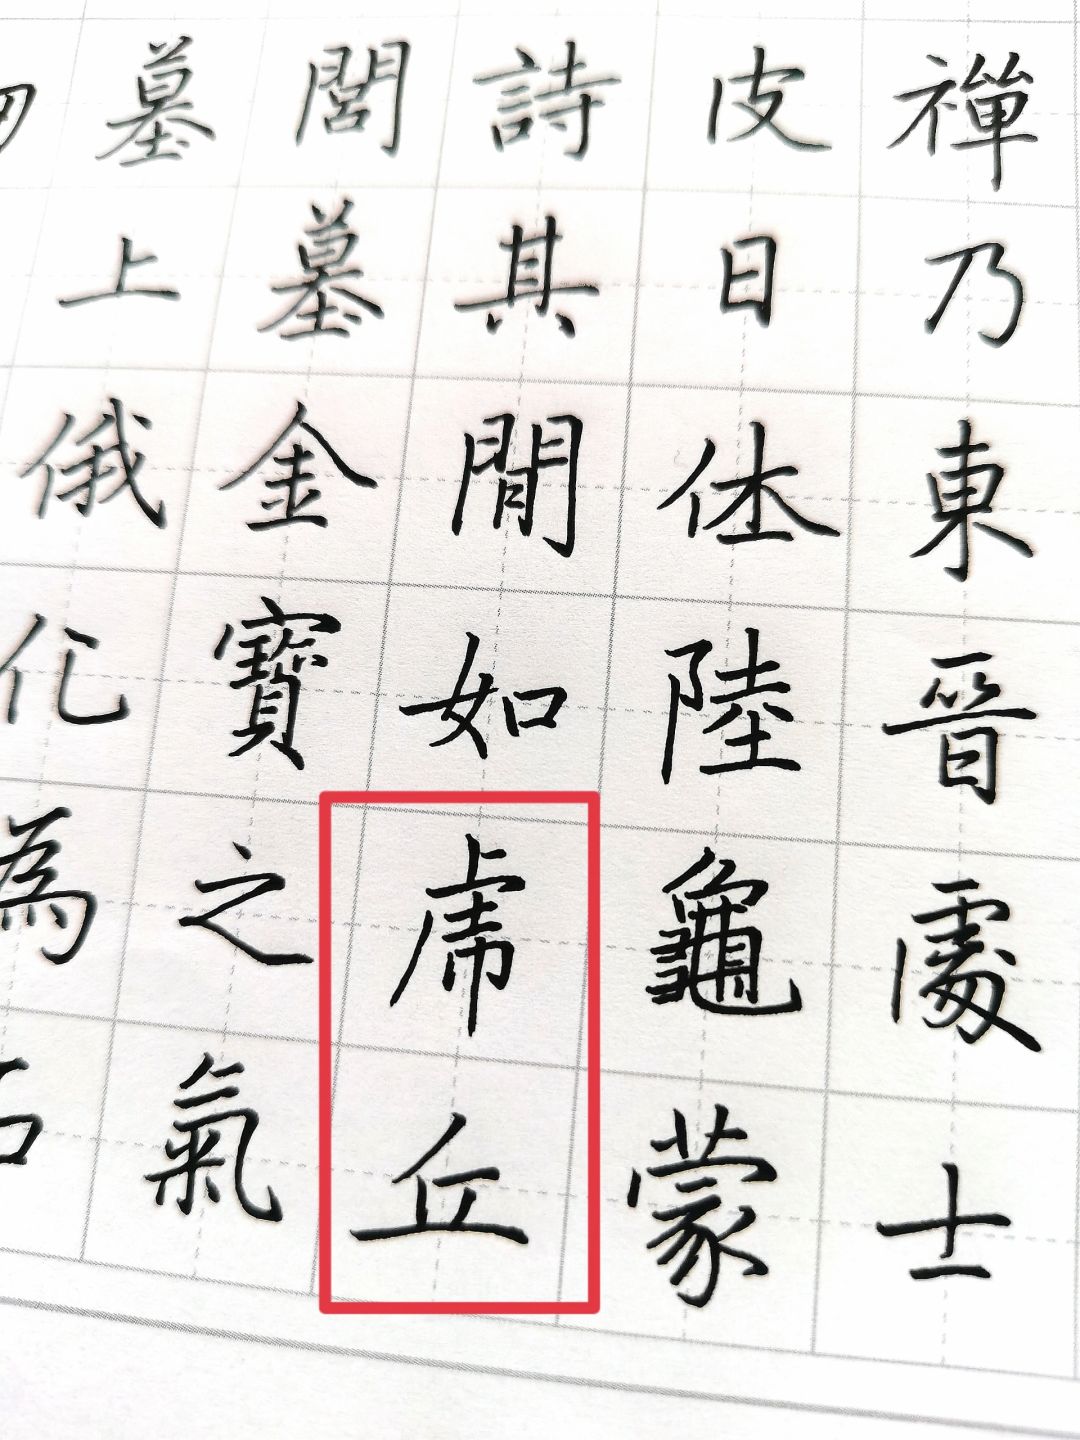 禪乃東晉處士
皮日休陸龜蒙
詩其間如虎丘
閭墓金寶之氣
墓上俄化為